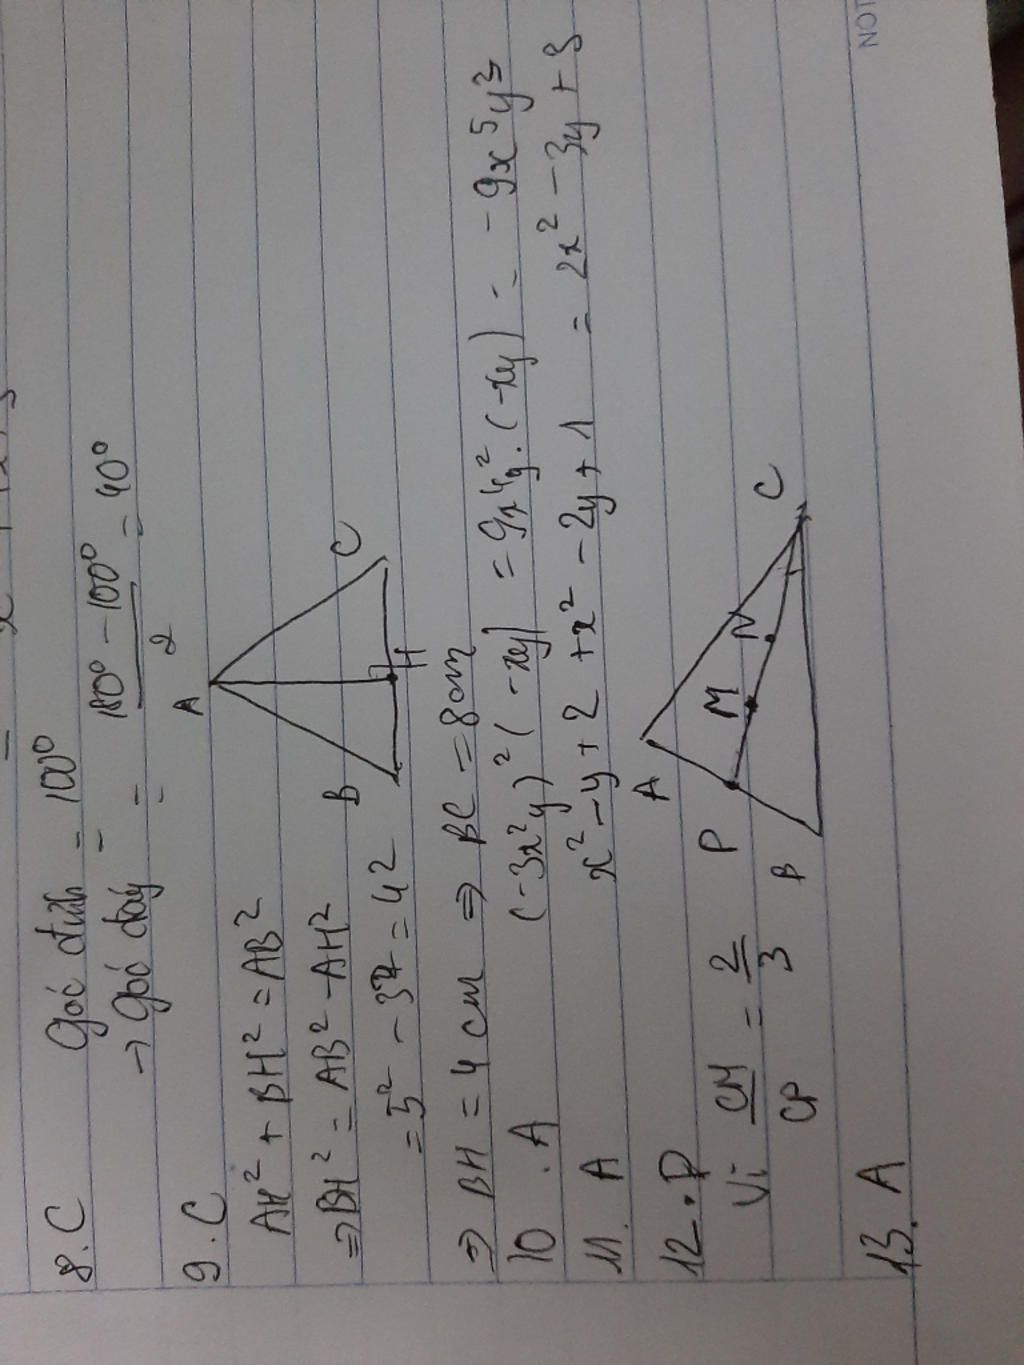 8. C Góc đỉnh = 100°
→ Góc đáy = = 180° - 100° / 2 = 40°
9. C
AH² + BH² = AB²
⇒ BH² = AB² - AH²
= 5² - 3² = 4²
A
B
C
H
⇒ BH = 4 cm ⇒ BC = 8cm
10. A (-3x²y)² (-xy) = 9x⁴y². (-xy) = -9x⁵y³
11. A x² - y + 2 + x² - 2y + 1 = 2x² - 3y + 3
12. D
Vì CM / CP = 2 / 3
A
P
M
N
B
C
13. A
NOT